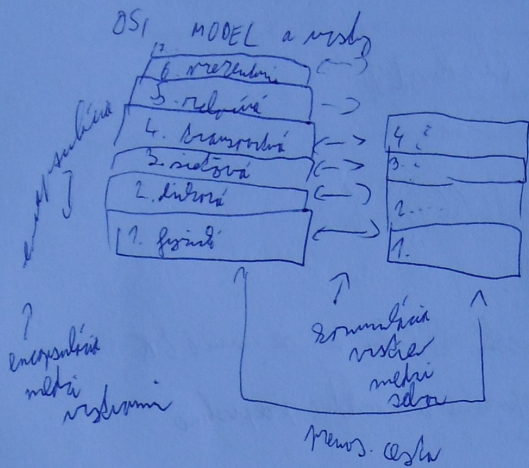 OSI MODEL a vrstvy
7.
6. prezentačná
5. relačná
4. transportná
3. sieťová
2. linková
1. fyzická
4.
3.
2.
1.
encapsulácia
medzi
vrstvami
komunikácia
vrstiev
medzi
sebou
prenos. cesta